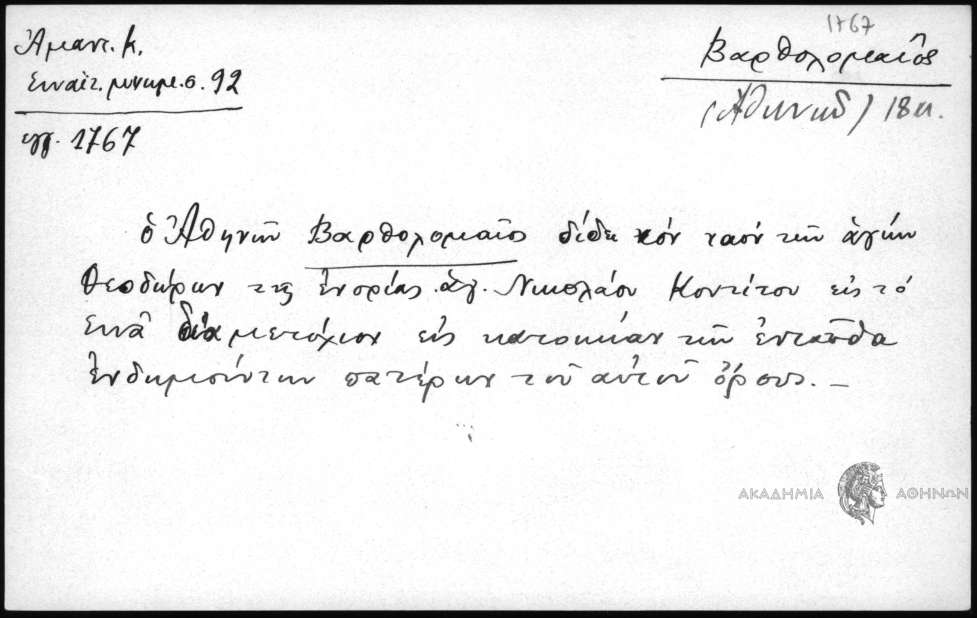 1767
Ἀμαντ. Κ.
Σιναϊτ. μνημ. σ. 92
ἔγγ. 1767
Βαρθολομαῖος
(Ἀθηνῶν) 18 αι.
ὁ Ἀθηνῶν Βαρθολομαῖος δίδει τὸν ναὸν τῶν ἁγίων
Θεοδώρων τῆς ἐνορίας ἁγ. Νικολάου εἰς τὸ
Σινᾶ διὰ μετόχιον εἰς κατοικίαν τῶν ἐνταῦθα
ἐνδημούντων πατέρων τοῦ αὐτοῦ ὄρους. –
ΑΚΑΔΗΜΙΑ ΑΘΗΝΩΝ